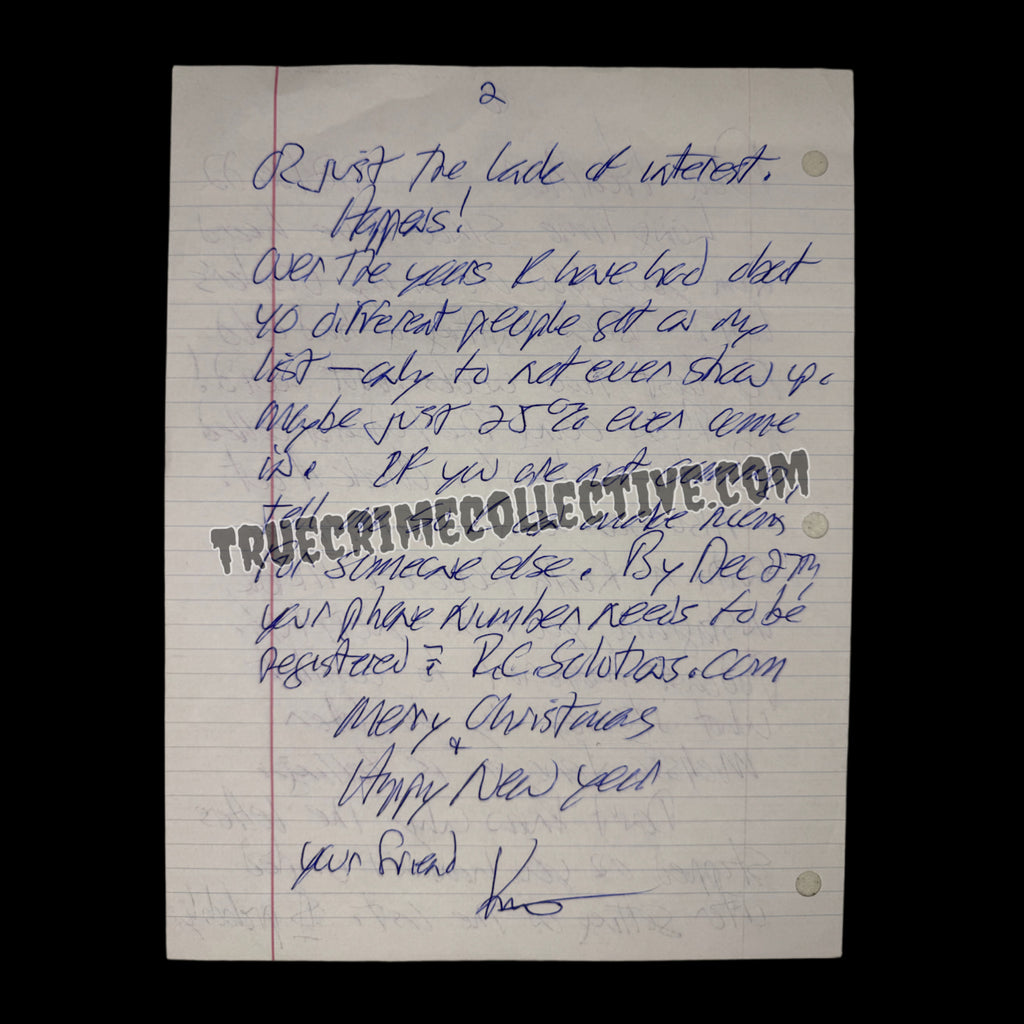 2
OR just the lack of interest.
Happens!
Over the years I have had about
40 different people get on my
list — only to not ever show up.
maybe just 25% ever come
in. If you are not coming,
tell me so I can make room
TRUECRIMECOLLECTIVE.COM
for someone else. By Dec 27th,
your phone number needs to be
registered: R.C.Solutions.com
Merry Christmas
&
Happy New year
your friend